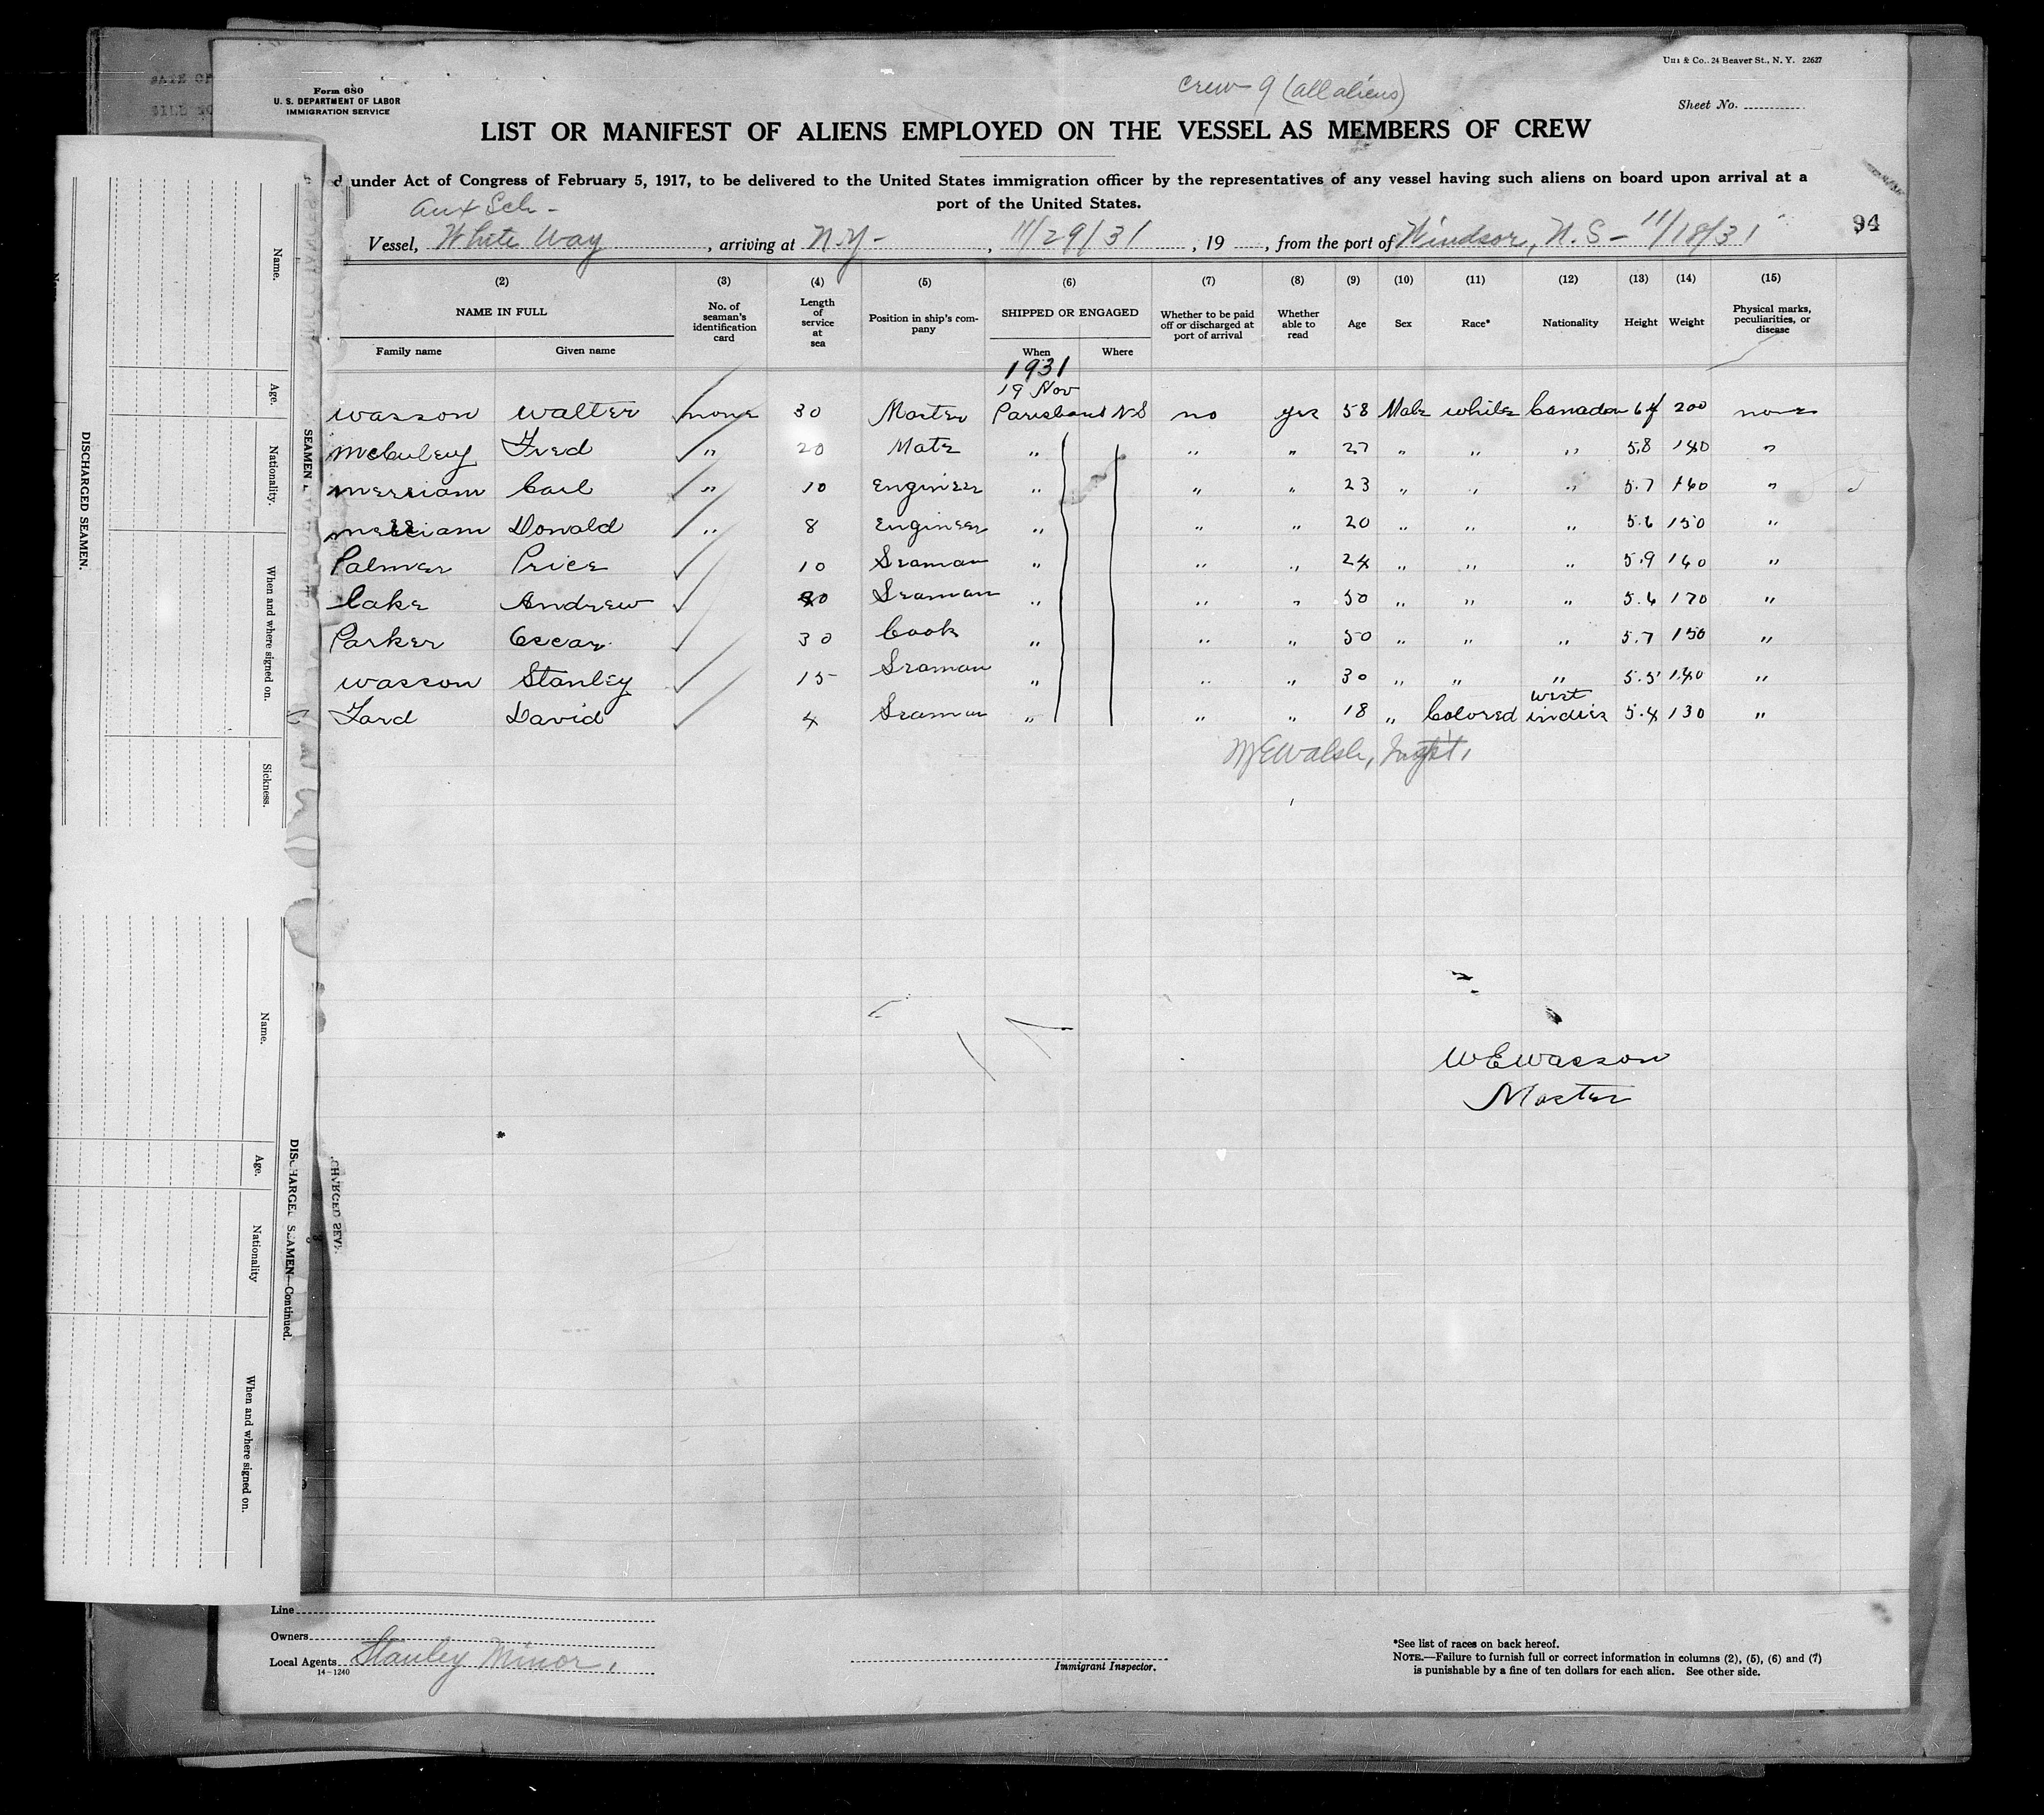 Uhl & Co., 24 Beaver St., N. Y. 22627
Form 680
U. S. DEPARTMENT OF LABOR
IMMIGRATION SERVICE
Crew 9 (all aliens)
Sheet No.
LIST OR MANIFEST OF ALIENS EMPLOYED ON THE VESSEL AS MEMBERS OF CREW
d under Act of Congress of February 5, 1917, to be delivered to the United States immigration officer by the representatives of any vessel having such aliens on board upon arrival at a
port of the United States.
Aux Sch -
94
Vessel, White Way, arriving at N.Y -, 11/29/31, 19, from the port of Windsor, N. S - 11/18/31
(2) (3) (4) (5) (6) (7) (8) (9) (10) (11) (12) (13) (14) (15)
NAME IN FULL
Family name Given name
No. of seaman's identification card
Length of service at sea
Position in ship's company
SHIPPED OR ENGAGED
When Where
Whether to be paid off or discharged at port of arrival
Whether able to read
Age
Sex
Race*
Nationality
Height
Weight
Physical marks, peculiarities, or disease
1931
19 Nov
Wasson Walter none 30 Master Parrsboro N S no yes 58 Male white Canadian 6 200 none
Fred " 20 Mate " " " 27 " " " 5.8 180 "
Merriam Carl " 10 Engineer " " " 23 " " " 5.7 160 "
Merriam Donald " 8 Engineer " " " 20 " " " 5.6 150 "
Palmer Price 10 Seaman " " " 24 " " " 5.9 160 "
Cake Andrew Seaman " " " 50 " " " 5.6 170 "
Parker Oscar 30 Cook " " " 50 " " " 5.7 150 "
Wasson Stanley 15 Seaman " " " 30 " " " 5.5 140 "
West
Ford David 4 Seaman " " " 18 " Colored indies 5.4 130 "
M E Walsh,
W E Wasson
Master
Line
Owners
Local Agents Stanley Minor,
14-1240
Immigrant Inspector.
*See list of races on back hereof.
NOTE.—Failure to furnish full or correct information in columns (2), (5), (6) and (7)
is punishable by a fine of ten dollars for each alien. See other side.
DISCHARGED SEAMEN.
Name.
Age.
Nationality.
When and where signed on.
Sickness.
DISCHARGED SEAMEN—Continued.
Name.
Age.
Nationality
When and where signed on.